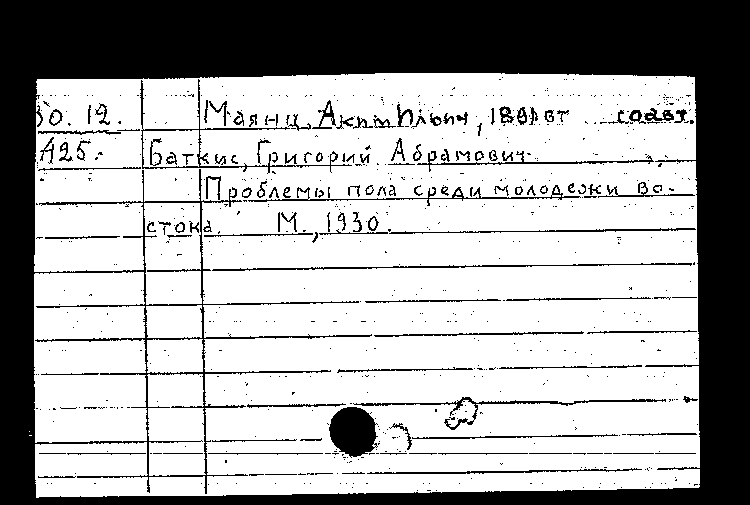 30. 12. Маянц, Аким Ильич, соавт.
А25. Баткис, Григорий Абрамович.
Проблемы пола среди молодежи Во-
стока. М., 1930.